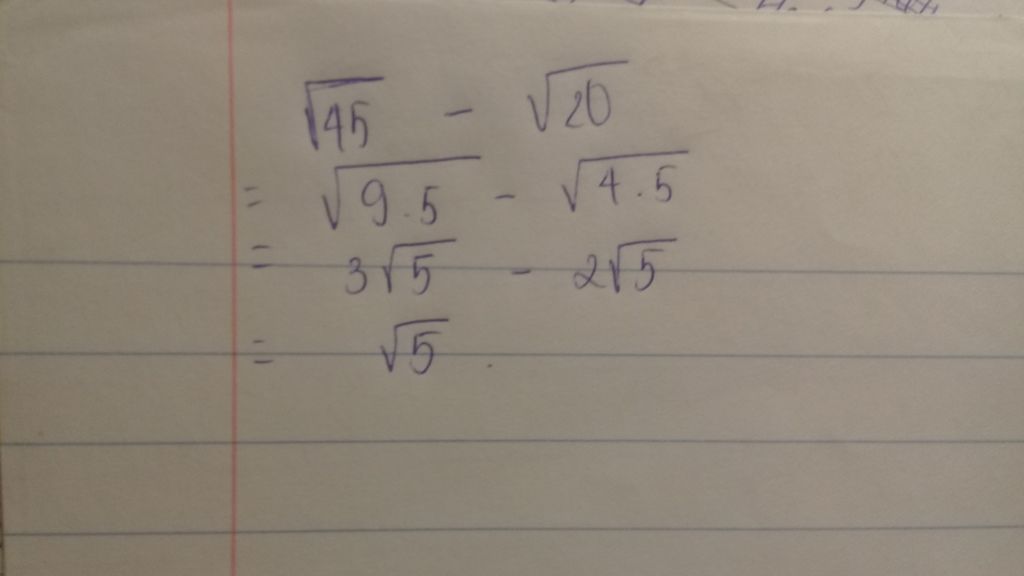 √45 - √20
= √9.5 - √4.5
= 3√5 - 2√5
= √5.